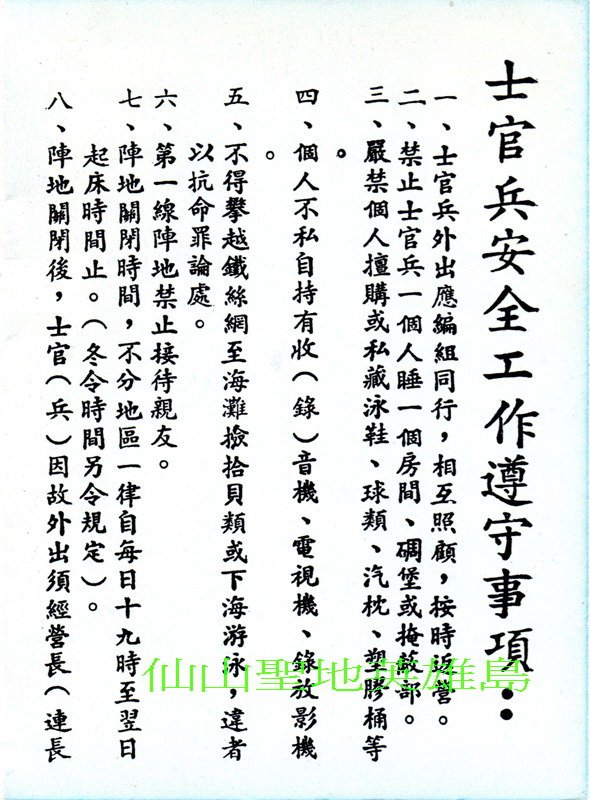 士官兵安全工作遵守事項：
一、士官兵外出應編組同行，相互照顧，按時返營。
二、禁止士官兵一個人睡一個房間、碉堡或掩蔽部。
三、嚴禁個人擅購或私藏泳鞋、球類、汽枕、塑膠桶等
。
四、個人不私自持有收（錄）音機、電視機、錄放影機
。
五、不得攀越鐵絲網至海灘撿拾貝類或下海游泳，違者
以抗命罪論處。
六、第一線陣地禁止接待親友。
七、陣地關閉時間，不分地區一律自每日十九時至翌日
起床時間止。（冬令時間另令規定）。
八、陣地關閉後，士官（兵）因故外出須經營長（連長
仙山聖地英雄島